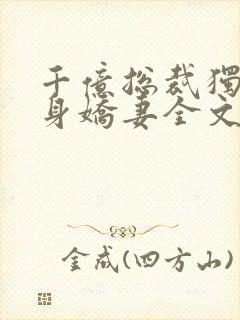 千億总裁獨
身嬌妻全文
金成(四方山)